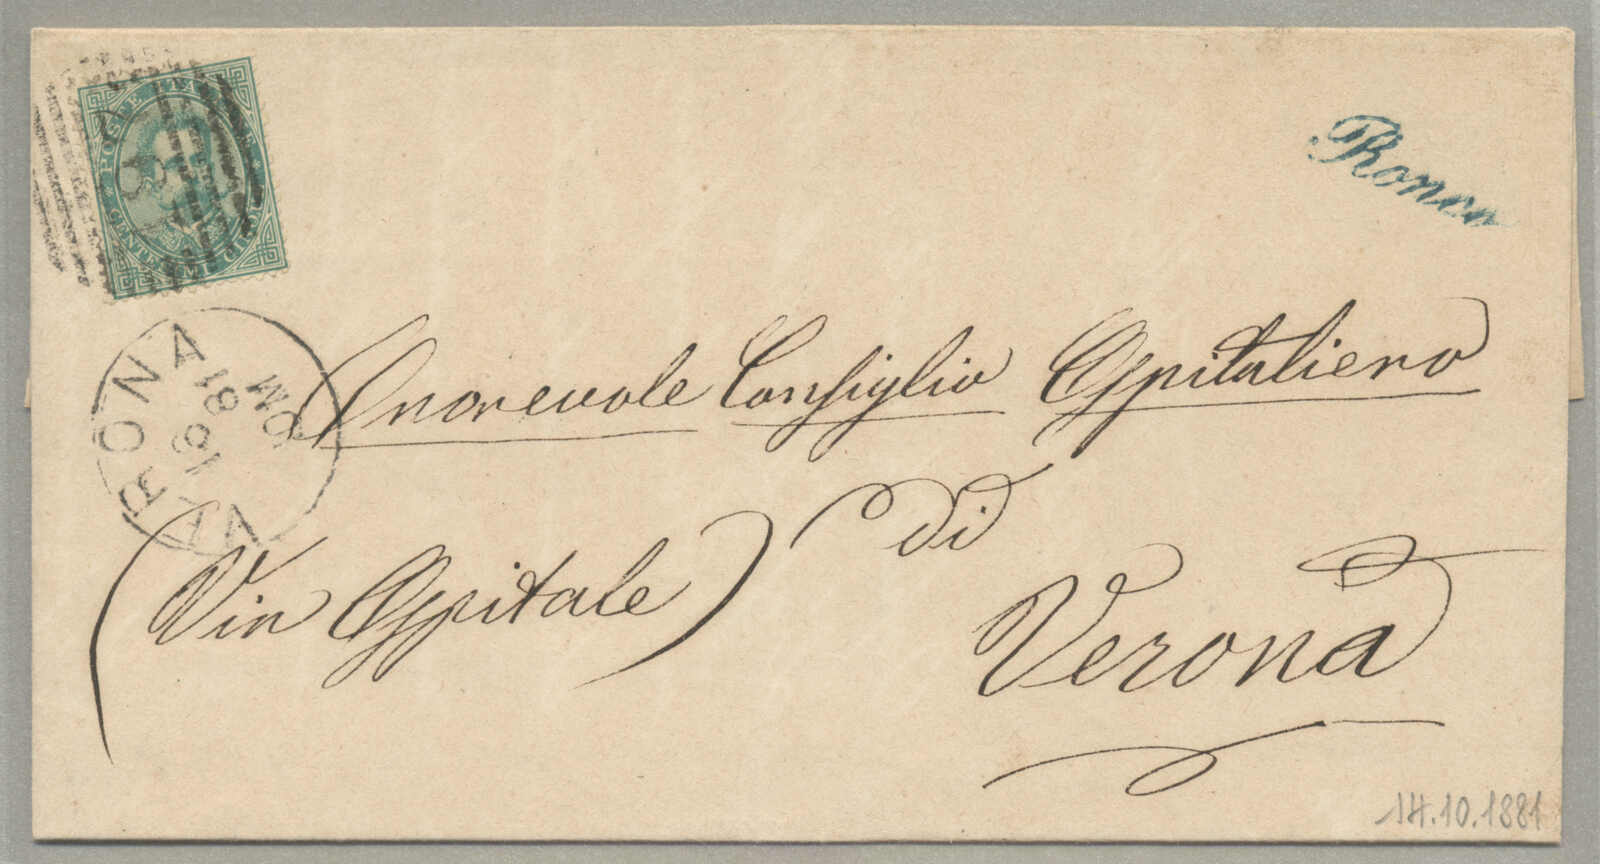 POSTE ITALIANE
CENTESIMI CINQUE
Ronco
VERONA
16 81
10M
Onorevole Consiglio Ospitaliero
di
(Via Ospitale)
Verona
14.10.1881